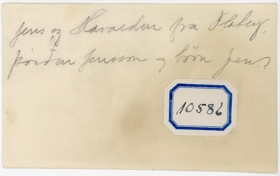 Jens og Haraldur frá Flatey.
Þórður Jensson og börn Jens
10586